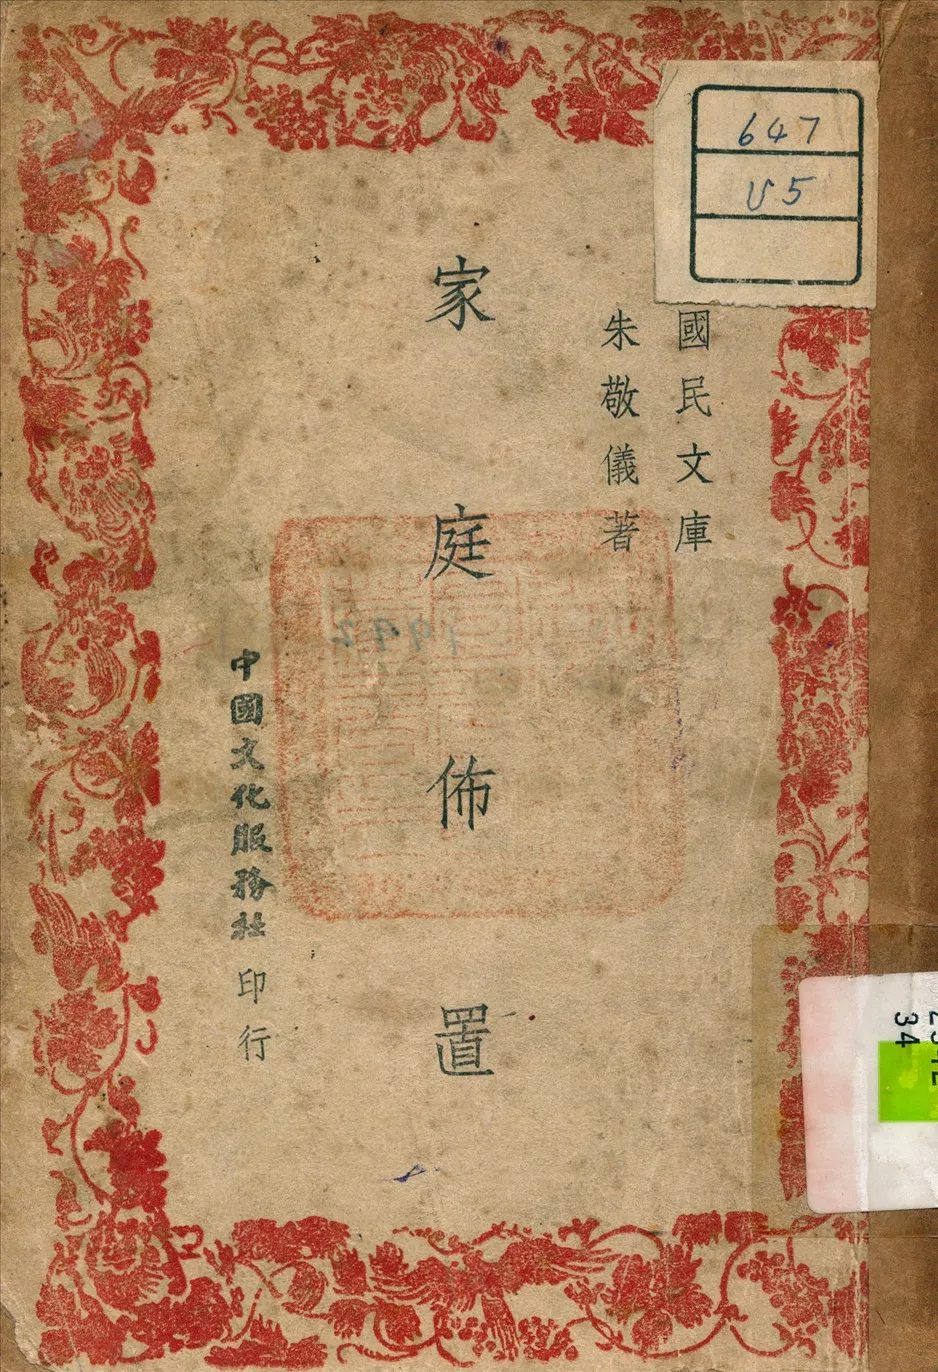 國民文庫
朱敬儀著
家庭佈置
中國文化服務社印行
647
U5
34